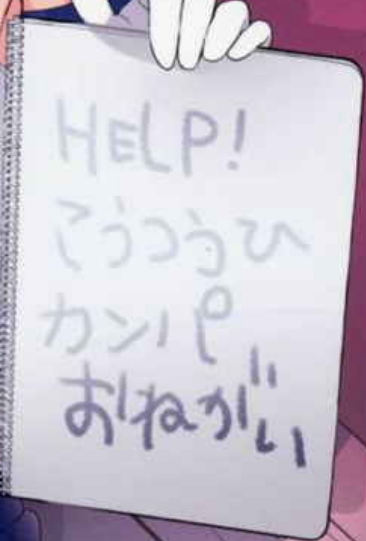 HELP!
こうつうひ
カンパ
おねがい